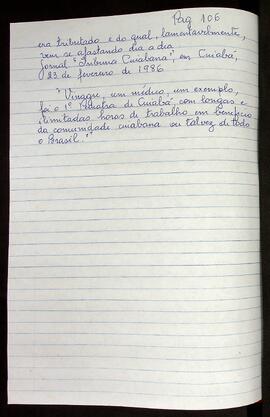 Pag 106
era tributado e do qual, lamentavelmente,
vem se afastando dia a dia.
Jornal "Tribuna Cuiabana", em Cuiabá,
23 de fevereiro de 1986
"Vinagre, um médico, um exemplo,
foi o 1º de Cuiabá com longas e
ilimitadas horas de trabalho em benefício
da comunidade cuiabana ou talvez de todo
o Brasil."